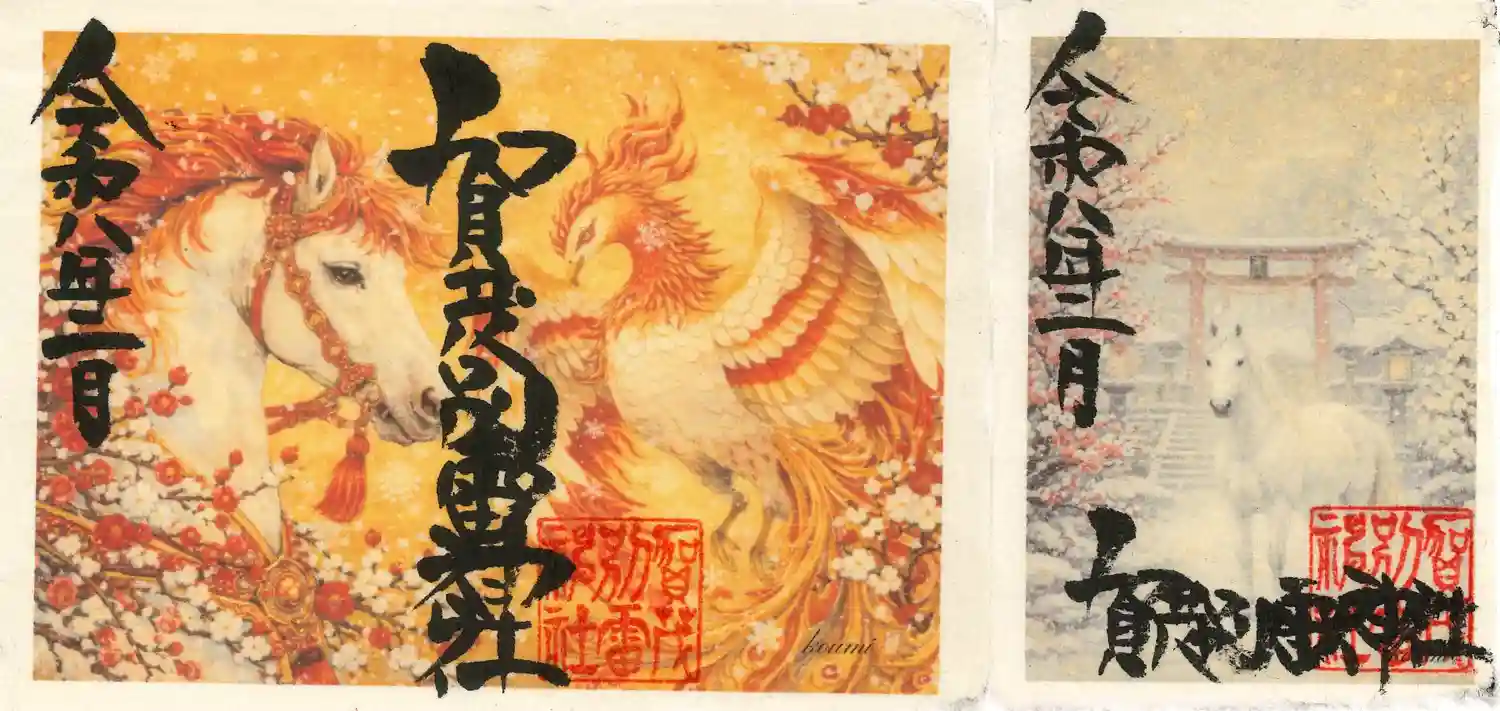 令和八年二月
賀茂別雷神社
賀茂
別雷
神社
koumi
令和八年二月
賀茂別雷神社
賀茂
別雷
神社